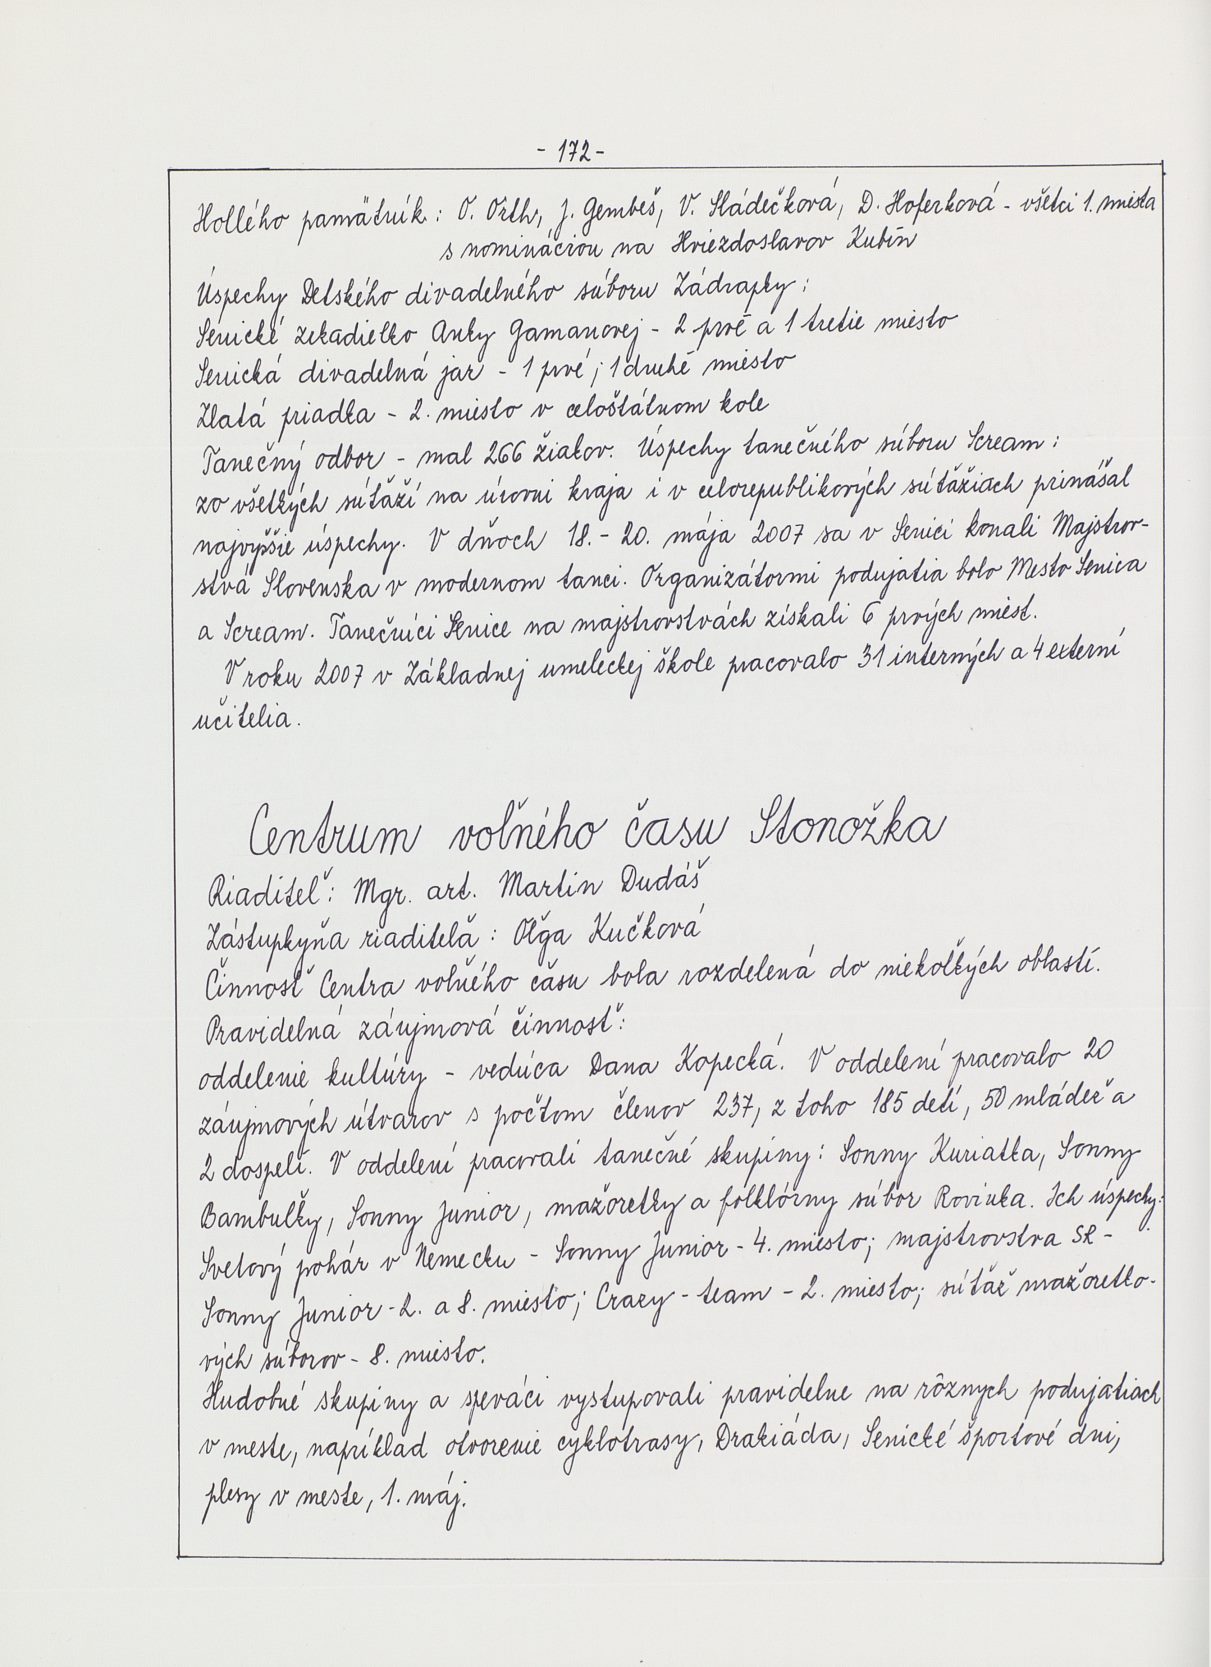 - 172 -
Hollého pamätník: O. Orth, J. Gembeš, V. Sládečková, D. Hoferková - všetci 1. miesta
s nomináciou na Hviezdoslavov Kubín
Úspechy Detského divadelného súboru Zádrapky:
Senické zrkadielko Anky Gamanovej - 2 prvé a 1 tretie miesto
Senická divadelná jar - 1 prvé; 1 druhé miesto
Zlatá priadka - 2. miesto v celoštátnom kole
Tanečný odbor - mal 266 žiakov. Úspechy tanečného súboru Scream:
zo všetkých súťaží na úrovni kraja i v celorepublikových súťažiach prinášal
najvyššie úspechy. V dňoch 18. - 20. mája 2007 sa v Senici konali Majstrov-
stvá Slovenska v modernom tanci. Organizátormi podujatia bolo Mesto Senica
a Scream. Tanečníci Senice na majstrovstvách získali 6 prvých miest.
V roku 2007 v Základnej umeleckej škole pracovalo 31 interných a 4 externí
učitelia.
Centrum voľného času Stonožka
Riaditeľ: Mgr. art. Martin Dudáš
Zástupkyňa riaditeľa: Oľga Kučková
Činnosť Centra voľného času bola rozdelená do niekoľkých oblastí.
Pravidelná záujmová činnosť:
oddelenie kultúry - vedúca Dana Kopecká. V oddelení pracovalo 20
záujmových útvarov s počtom členov 237, z toho 185 detí, 50 mládež a
2 dospelí. V oddelení pracovali tanečné skupiny: Sonny Kuriatka, Sonny
Bambuľky, Sonny Junior, mažoretky a folklórny súbor Rovinka. Ich úspechy:
Svetový pohár v Nemecku - Sonny Junior - 4. miesto; majstrovstva SR -
Sonny Junior - 2. a 8. miesto; Crazy - team - 2. miesto; súťaž mažoretko-
vých súborov - 8. miesto.
Hudobné skupiny a speváci vystupovali pravidelne na rôznych podujatiach
v meste, napríklad otvorenie cyklotrasy, Drakiáda, Senické športové dni,
plesy v meste, 1. máj.